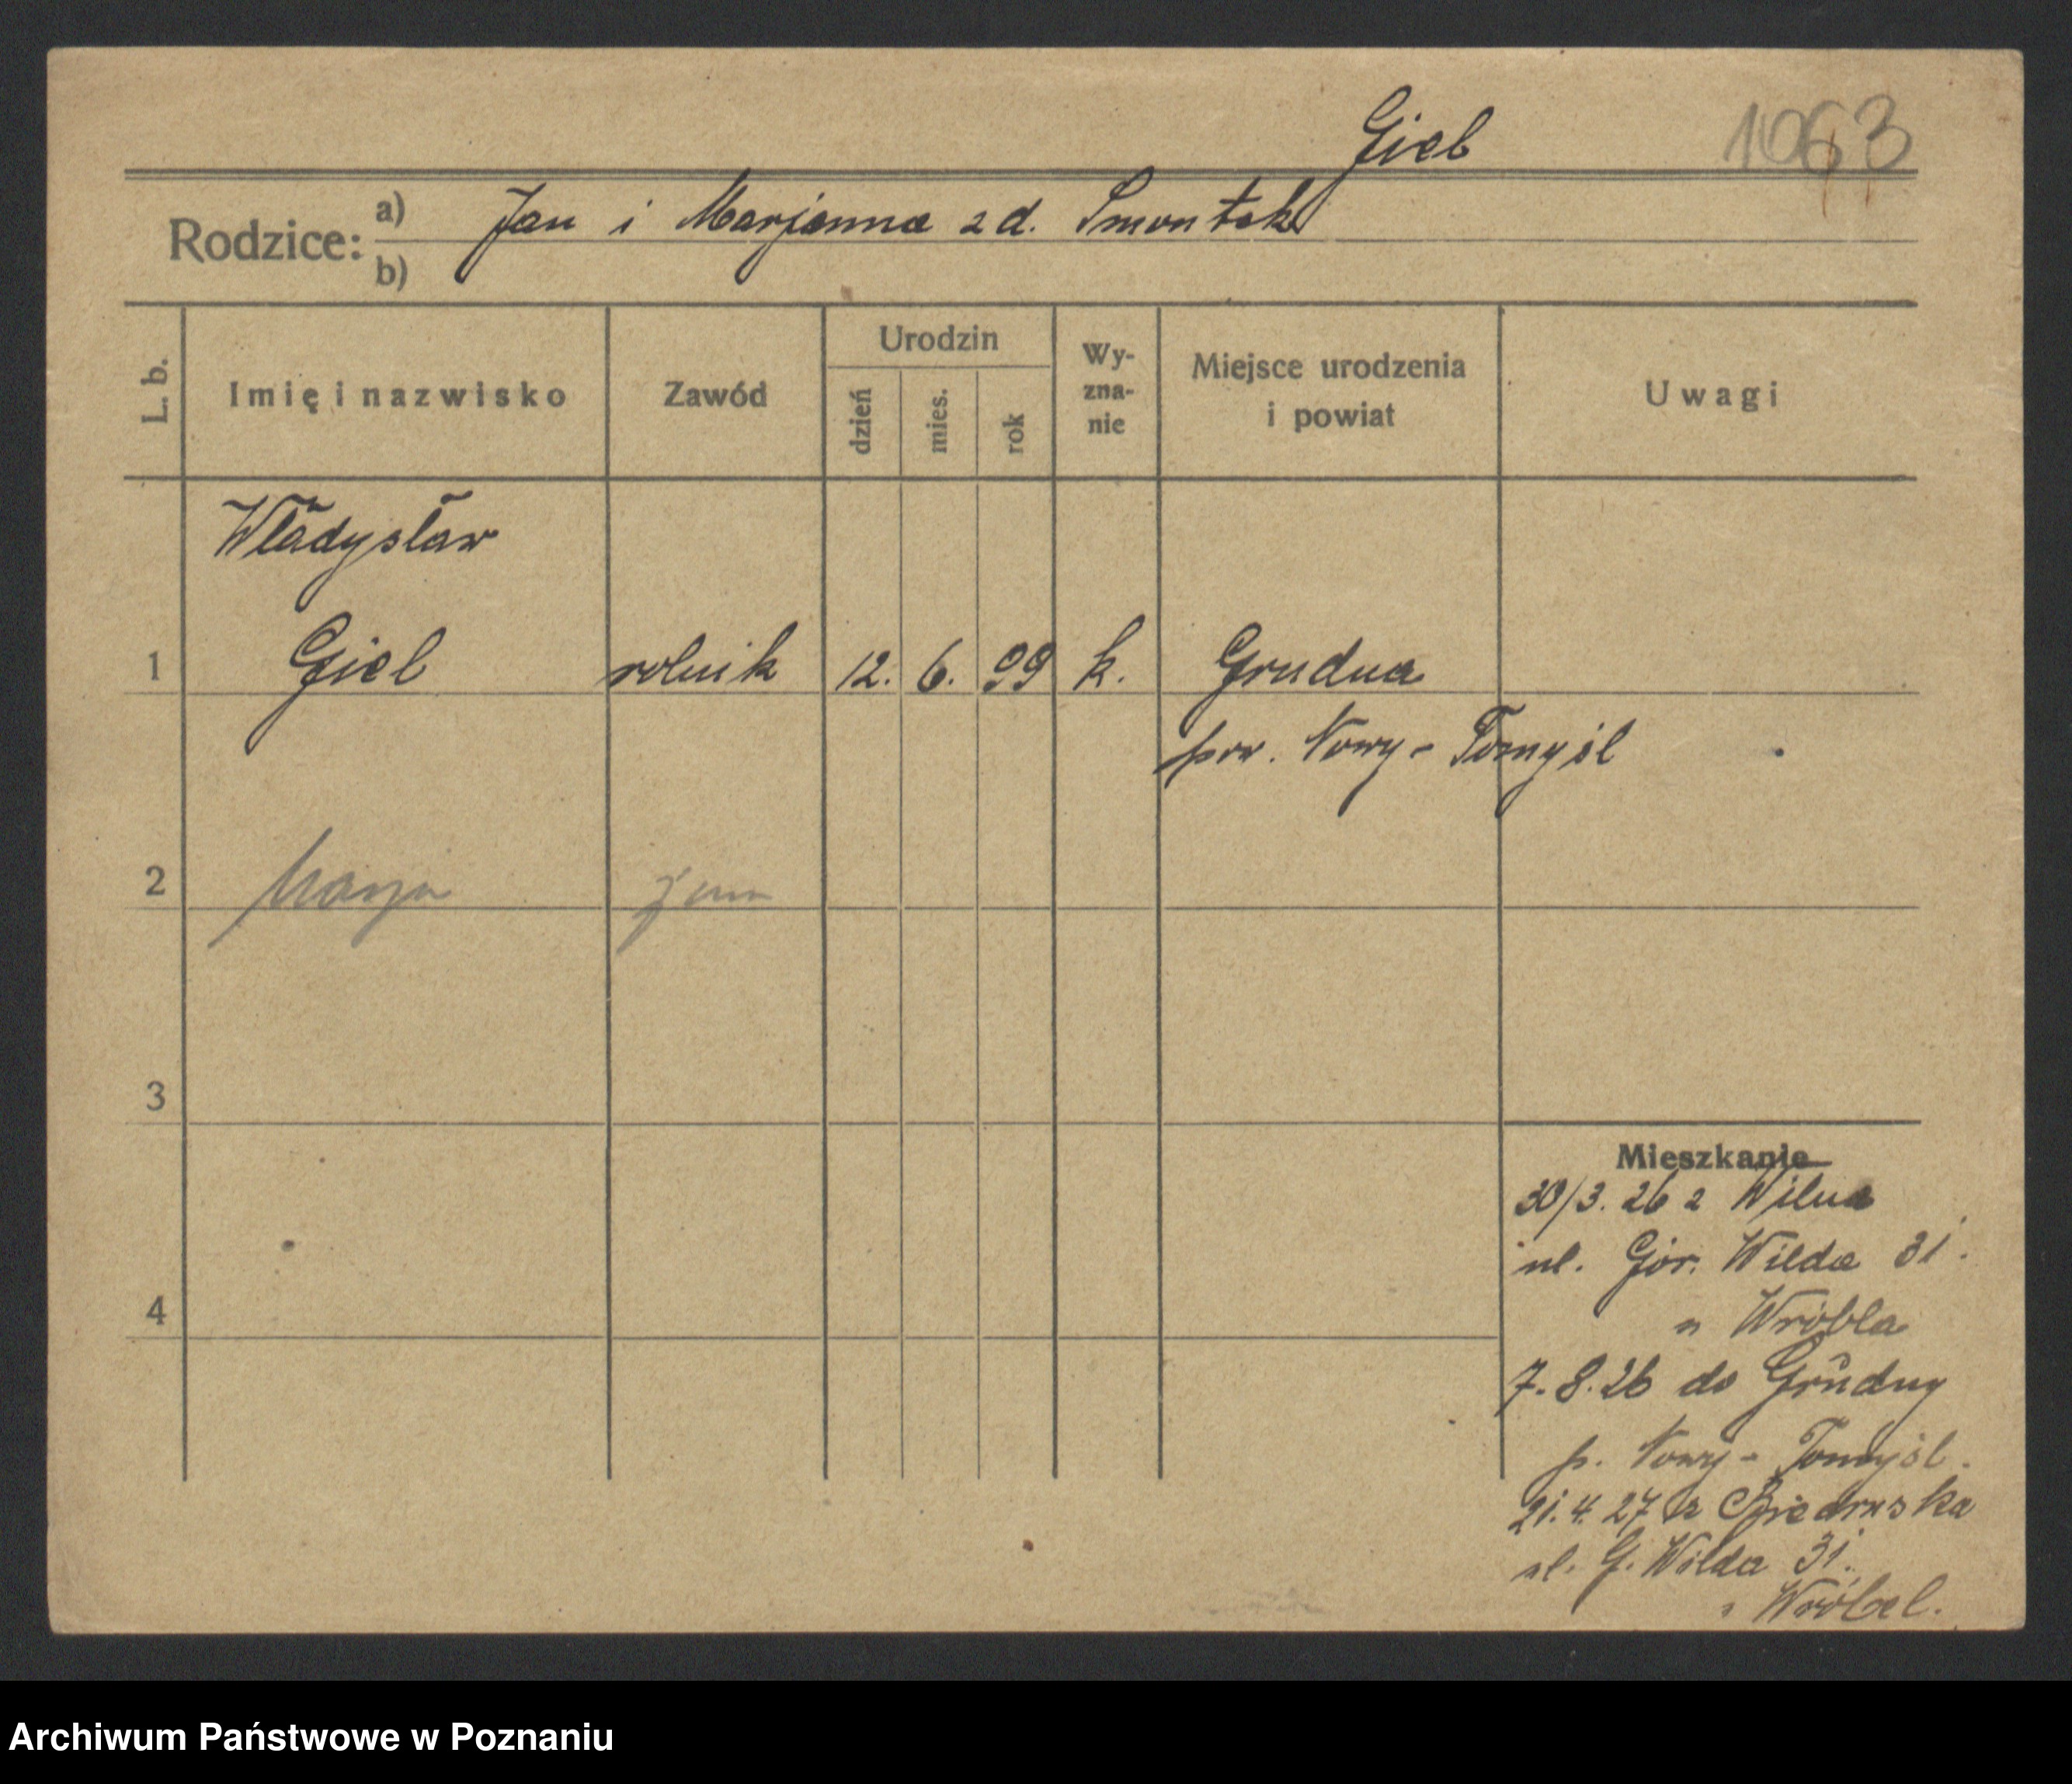 Giel
1063
Rodzice:
a) Jan i Marjanna z d. Smontek
b)
L. b.
Imię i nazwisko
Zawód
Urodzin
dzień
mies.
rok
Wy-
zna-
nie
Miejsce urodzenia
i powiat
Uwagi
Władysław
1 Giel rolnik 12. 6. 99 k. Grudna
pow. Nowy-Tomyśl
2 Marja żona
3
4
Mieszkanie
30/3. 26 z Wilna
ul. Gór. Wilda 31.
u Wróbla
7.8.26 do Grudny
p. Nowy-Tomyśl.
21.4.27 z Biedruska
ul. G. Wilda 31.
Wróbel.
Archiwum Państwowe w Poznaniu